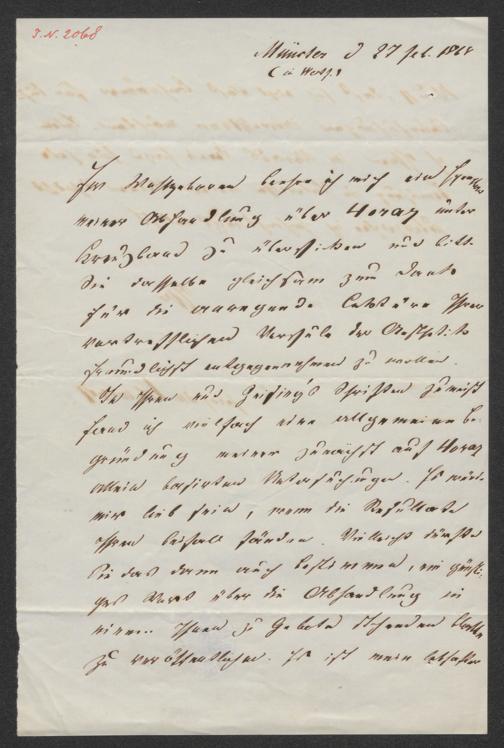 J. N. 2068
Münster d 27 Feb. 1868
(in Westf.)
Ew Wohlgeboren beehre ich mich ein Exemplar
meiner Abhandlung über Horaz unter
Kreuzband zu übersenden und bitte
Sie dasselbe gleichsam zum Danke
für die anregende Lektüre Ihrer
vortrefflichen Vorschule der Aesthetik
freundlichst entgegennehmen zu wollen.
In Ihren und Zeising's Schriften zumeist
fand ich vielfach eine allgemeine Be-
gründung meiner zunächst auf Horaz
allein basirten Untersuchungen. Es würde
mir lieb sein, wenn die Resultate
Ihren Beifall fänden. Vielleicht dürfte
Sie das dann auch bestimmen, ein günsti-
ges Wort über die Abhandlung in
einem Ihnen zu Gebote stehenden Blatte
zu veröffentlichen. Es ist mein